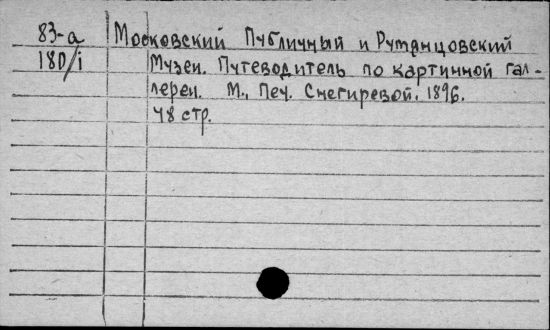 83-а Московский Публичный и Румянцовский
180/i Музеи. Путеводитель по картинной гал-
лереи. М., Печ. Снегиревой. 1896.
48 стр.